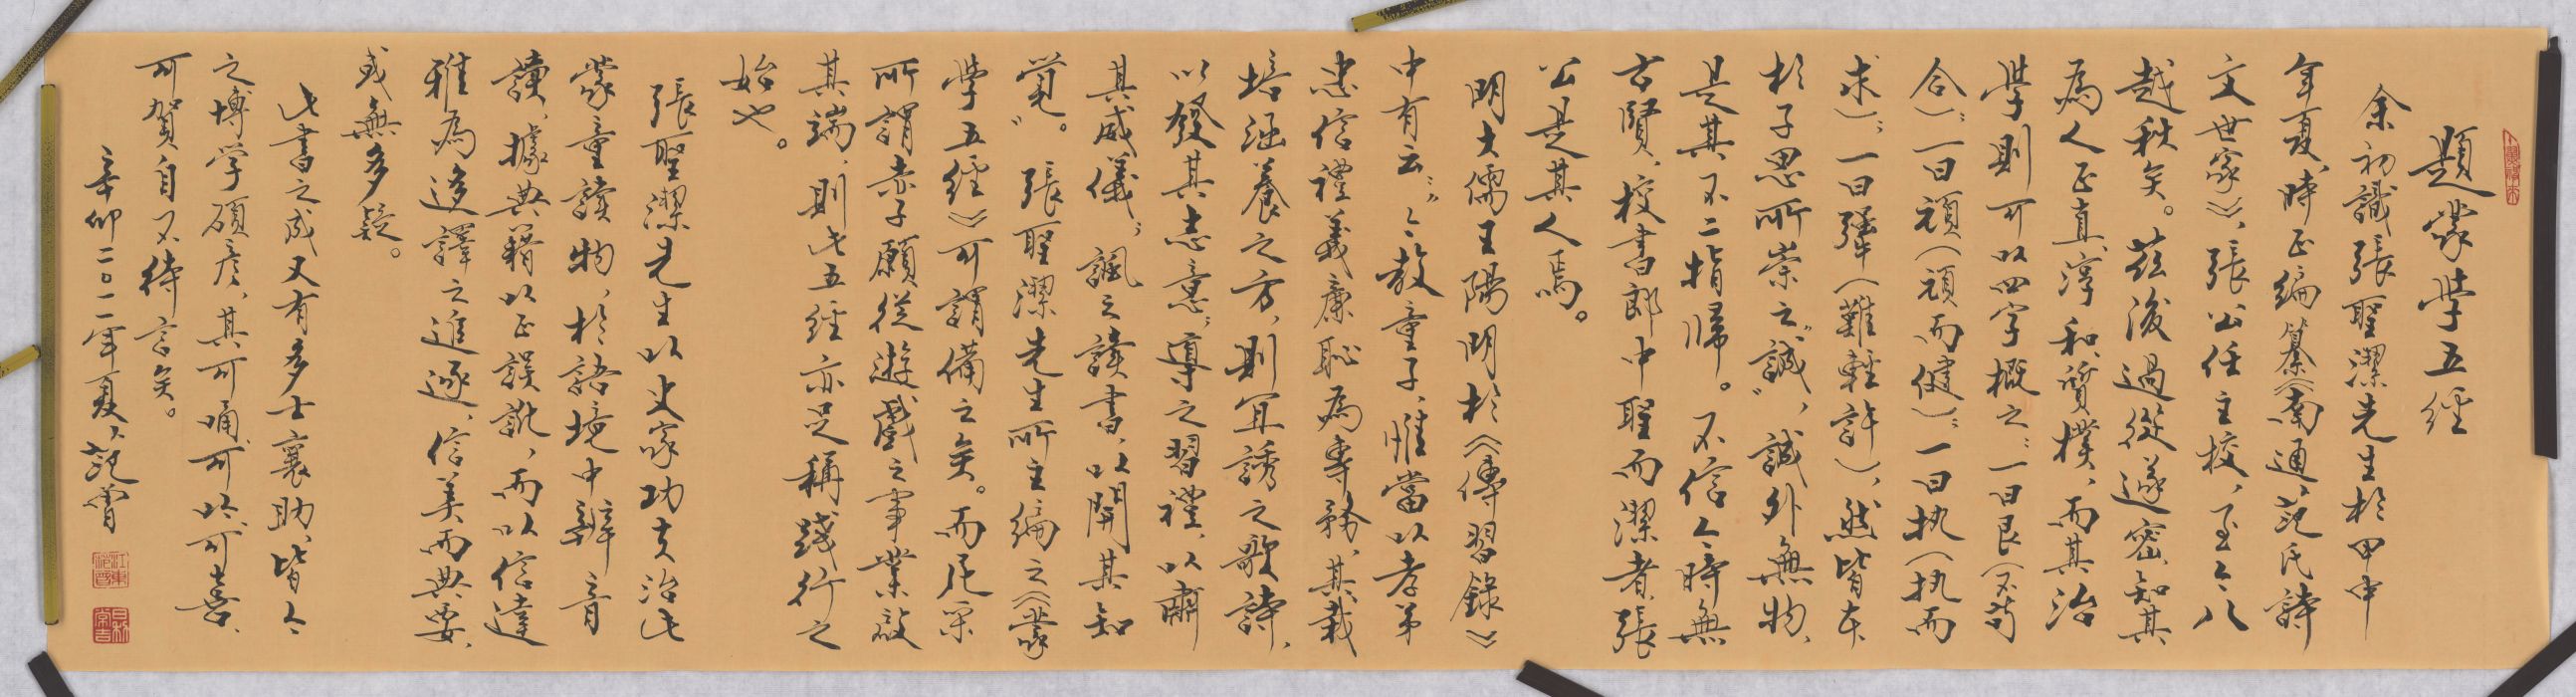 題蒙学五經
余初識張聖潔先生於甲申
年夏,時正编纂《南通范氏詩
文世家》,張公任主校,至今八
越秋矣。茲後過從遂密,知其
為人正直、淳和、質樸,而其治
學則可以四字概之:一曰艮(不苟
合);一曰頑(頑而健);一曰执(执而
求);一曰犟(難輕許),然皆本
於子思所崇之“誠”,誠外無物,
是其不二指歸。不信今時無
古賢,校書郎中聖而潔者,張
公是其人焉。
明大儒王陽明於《傳習錄》
中有云:“今教童子,惟當以孝弟
忠信禮義廉恥為專務,其栽
培涵養之方,則宜誘之歌詩,
以發其志意;導之習禮,以肅
其威儀;諷之讀書,以開其知
覺”。張聖潔先生所主编之《蒙
学五經》可謂備之矣。而尼采
所謂赤子願從遊戲之事業啟
其端,則此五經亦足稱踐行之
始也。
張聖潔先生以史家功夫治此
蒙童讀物,於語境中辨音
讀,據典籍以正誤訛,而以信達
雅為迻譯之追逐,信美而典要,
或無多疑。
此書之成又有多士襄助,皆今
之博学碩彦,其可誦、可以、可喜、
可賀自不待言矣。
辛卯二〇一一年夏,范曾
江東范曾